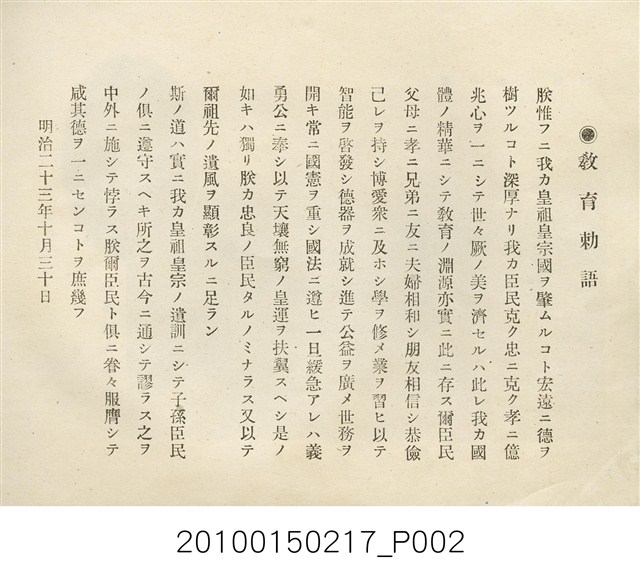 ◉教育勅語
朕惟フニ我カ皇祖皇宗國ヲ肇ムルコト宏遠ニ德ヲ
樹ツルコト深厚ナリ我カ臣民克ク忠ニ克ク孝ニ億
兆心ヲ一ニシテ世々厥ノ美ヲ濟セルハ此レ我カ國
體ノ精華ニシテ敎育ノ淵源亦實ニ此ニ存ス爾臣民
父母ニ孝ニ兄弟ニ友ニ夫婦相和シ朋友相信シ恭儉
己レヲ持シ博愛衆ニ及ホシ學ヲ修メ業ヲ習ヒ以テ
智能ヲ啓發シ德器ヲ成就シ進テ公益ヲ廣メ世務ヲ
開キ常ニ國憲ヲ重シ國法ニ遵ヒ一旦緩急アレハ義
勇公ニ奉シ以テ天壤無窮ノ皇運ヲ扶翼スヘシ是ノ
如キハ獨リ朕カ忠良ノ臣民タルノミナラス又以テ
爾祖先ノ遺風ヲ顯彰スルニ足ラン
斯ノ道ハ實ニ我カ皇祖皇宗ノ遺訓ニシテ子孫臣民
ノ俱ニ遵守スヘキ所之ヲ古今ニ通シテ謬ラス之ヲ
中外ニ施シテ悖ラス朕爾臣民ト俱ニ眷々服膺シテ
咸其德ヲ一ニセンコトヲ庶幾フ
明治二十三年十月三十日
20100150217_P002